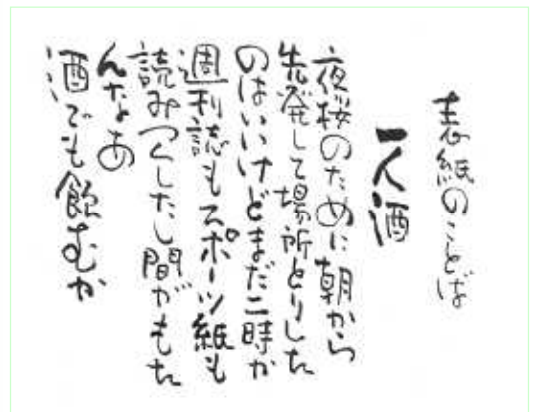 表紙のことば
一人酒
夜桜のために朝から
先発して場所とりした
のはいいけどまだ二時か
週刊誌もスポーツ紙も
読みつくしたし間がもた
んなあ
酒でも飲むか